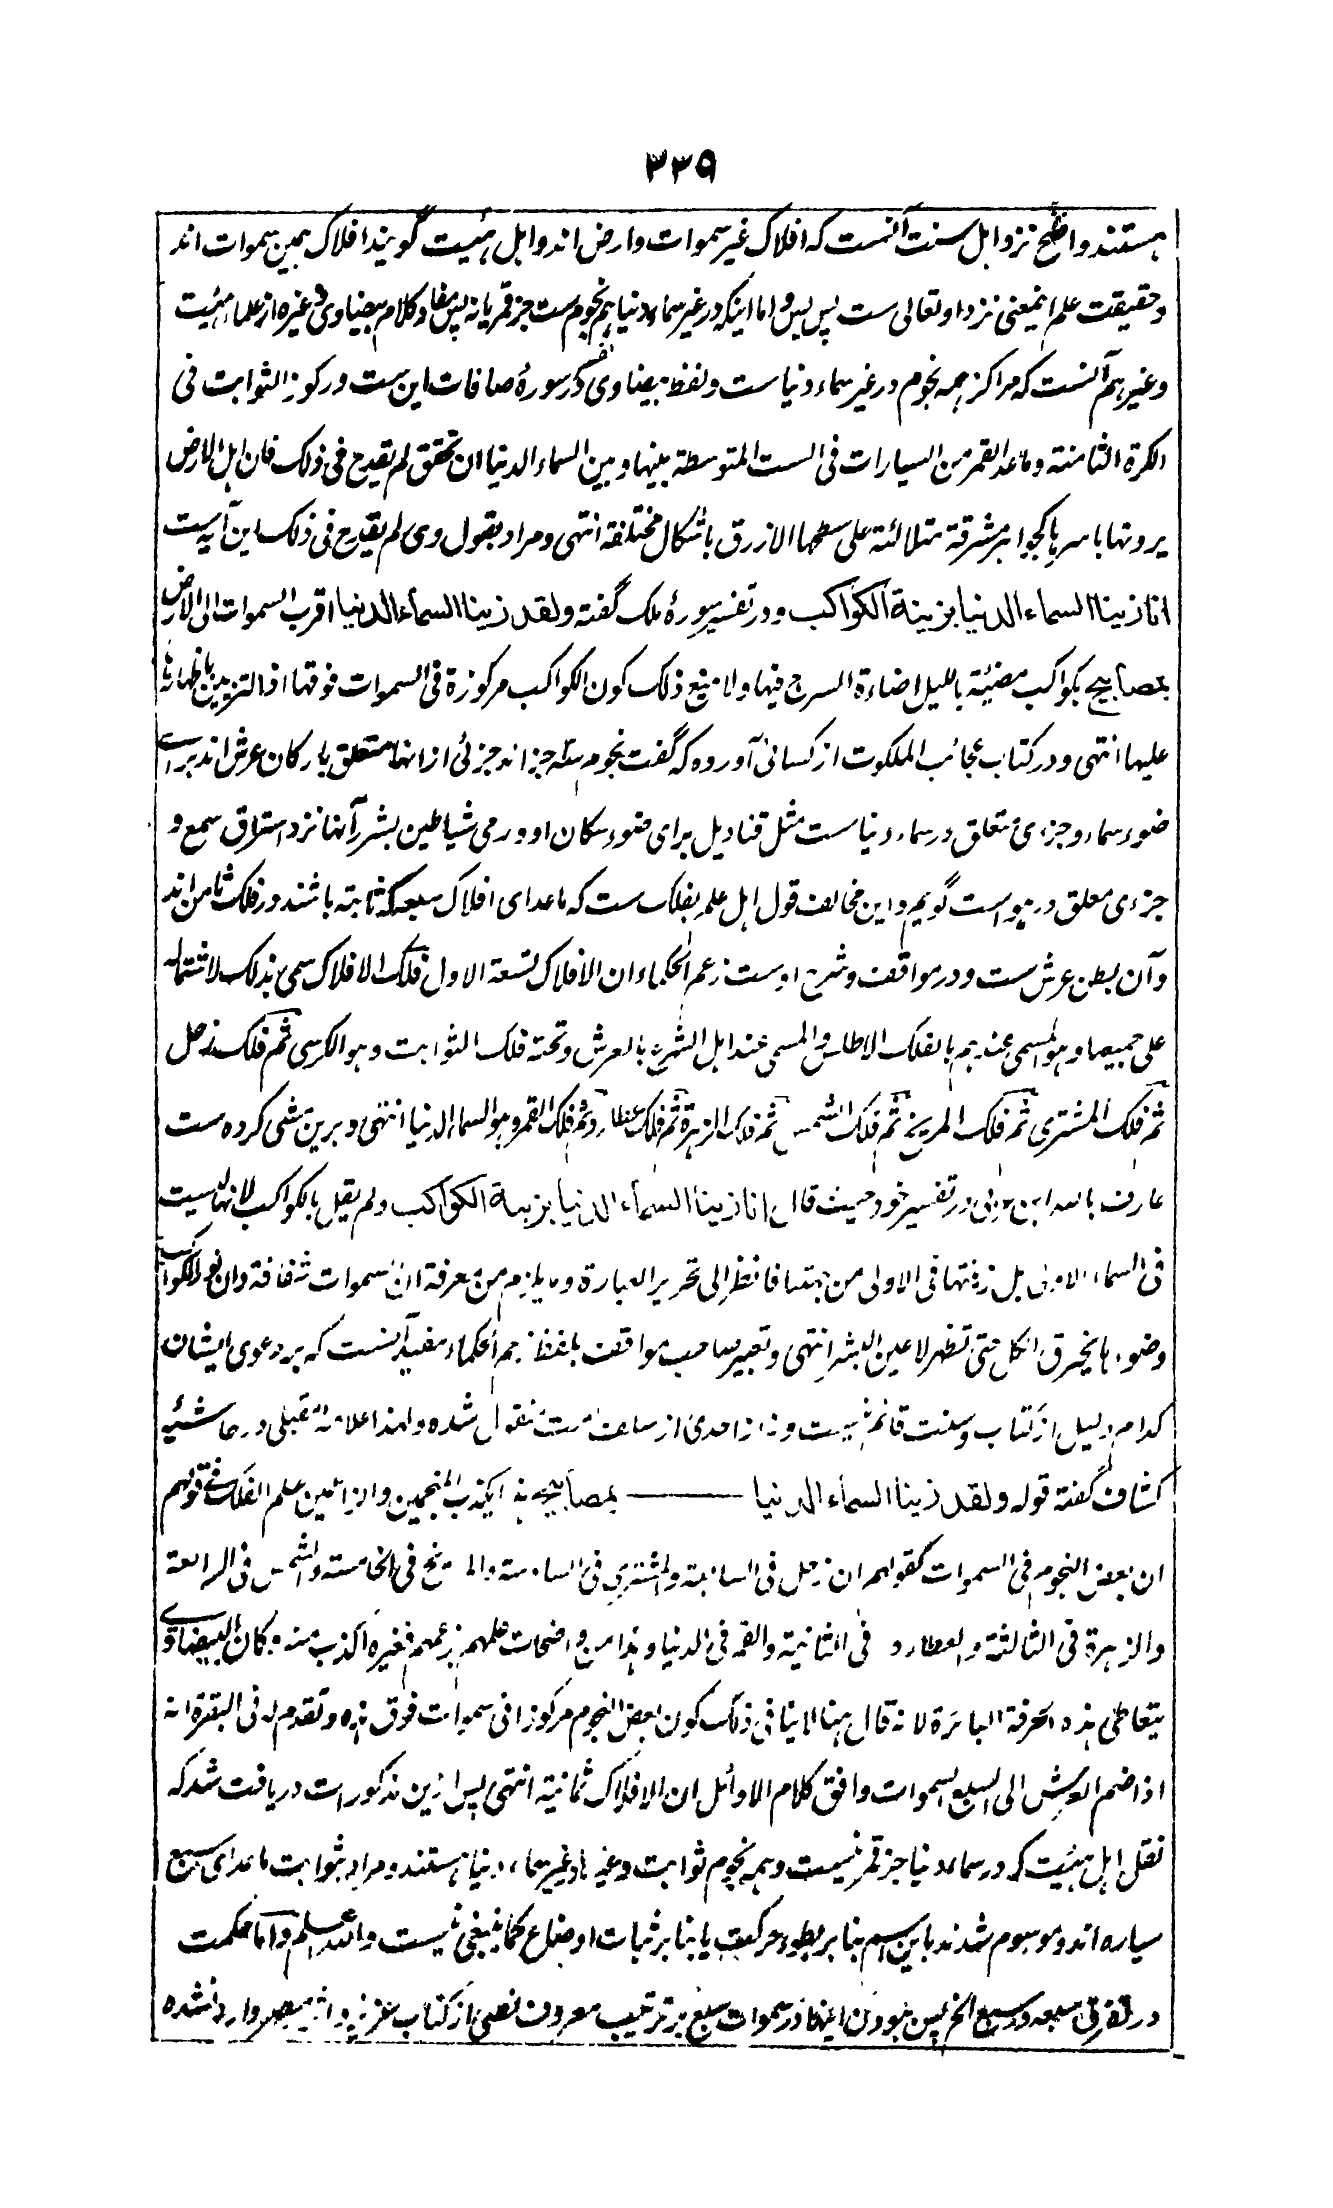 ۳۳۹
هستند و اظهر نزد اهل سنت آنست که افلاک غیر سموات و ارض اند و اهل هیئت گویند افلاک همین سموات اند
و حقیقت علم اینمعنی نزد او تعالی ست پس و اما اینکه در غیر سماء دنیا هم نجوم ست جز قمر یا نه پس مفاد کلام بیضاوی و غیره از علماء هیئت
و غیر هم آنست که مراکز همه نجوم در غیر سماء دنیا ست و لفظ بیضاوی در سورهٔ صافات این ست و رکوز الثوابت فی
الکرة الثامنة و ما عدا القمر من السیارات فی الست المتوسطة بینها و بین السماء الدنیا ان تحقق لم یقدح فی ذلک فان اهل الارض
یرونها باسرها کجواهر مشرقة متلالئة علی سطحها الازرق باشکال مختلفة انتهی و مراد بقول وی لم یقدح فی ذلک این آیه ست
انا زینا السماء الدنیا بزینة الکواکب و در تفسیر سورهٔ ملک گفته و لقد زینا السماء الدنیا اقرب السموات الی الارض
بمصابیح بکواکب مضیئة باللیل اضاءة السرج فیها و لا یمنع ذلک کون الکواکب مرکوزة فی السموات فوقها اذ التزیین باظهارها
علیها انتهی و در کتاب عجائب الملکوت از کسائی آورده که گفت نجوم سه جز اند جزئی از انها متعلق بارکان عرش اند برای
ضوء سماء و جزءی متعلق در سماء دنیا ست مثل قنادیل برای ضوء سکان او و رمی شیاطین بشرر آنها نزد استراق سمع و
جزءی معلق در هوا ست گویم و این مخالف قول اهل علم بفلک ست که ماعدای افلاک سبعه که ثابته باشند در فلک ثامن اند
و آن بطن عرش ست و در مواقف و شرح اوست زعم الحکماء ان الافلاک تسعة الاول فلک الافلاک سمی بذلک لاشتماله
علی جمیعها و هو المسمی عندهم بالفلک الاطلس و المسمی عند اهل الشرع بالعرش و تحته فلک الثوابت و هو الکرسی ثم فلک زحل
ثم فلک المشتری ثم فلک المریخ ثم فلک الشمس ثم فلک الزهرة ثم فلک عطارد ثم فلک القمر و هو السماء الدنیا انتهی و برین مشی کرده ست
عارف بالله ابن عربی در تفسیر خود حیث قال انا زینا السماء الدنیا بزینة الکواکب و لم یقل بالکواکب لانها لیست
فی السماء الاولی بل زینتها فی الاولی من جهتها فانظر الی تحریر العبارة و ما یلزم من معرفة ان السموات شفافة و ان نور الکواکب
و ضوءها یخرق الکل حتی تظهر لاعین البشر انتهی و تعبیر صاحب مواقف بلفظ زعم الحکماء مفید آنست که بر دعوی ایشان
کدام دلیل از کتاب و سنت قائم نیست و نه از احدی از سلف امت منقول شده و لهذا علامه مقبلی در حاشیه
کشاف گفته قوله و لقد زینا السماء الدنیا ـــــــــ بمصابیح هذا یکذب المنجمین و الزاعمین علم الفلک فی قولهم
ان بعض النجوم فی السموات کقولهم ان زحل فی السابعة و المشتری فی السادسة و المریخ فی الخامسة و الشمس فی الرابعة
و الزهرة فی الثالثة و العطارد فی الثانیة و القمر فی الدنیا و هذا من واضحات علمهم بزعمهم فغیره اکذب منه و کان البیضاوی
یتعاطی هذه الحرفة البائرة لانه قال هنا لا ینافی ذلک کون بعض النجوم مرکوزا فی سموات فوق هذه و تقدم له فی البقرة انه
اذا ضم العرش الی السبع السموات وافق کلام الاوائل ان الافلاک ثمانیة انتهی پس ازین مذکورات دریافت شد که
نقل اهل هیئت که در سماء دنیا جز قمر نیست و همه نجوم ثوابت و غیرها در غیر سماء دنیا هستند و مراد بثوابت ماعدای سبع
سیاره اند و موسوم شدند باین اسم بنا بر بطوء حرکت یا بنا بر ثبات اوضاع کما ینبغی نیست و الله اعلم و اما حکمت
در تفرق سبعه در سبع الخ پس نبودن اینها در سموات سبع بر ترتیب معروف نصی از کتاب عزیز و وارد نشده